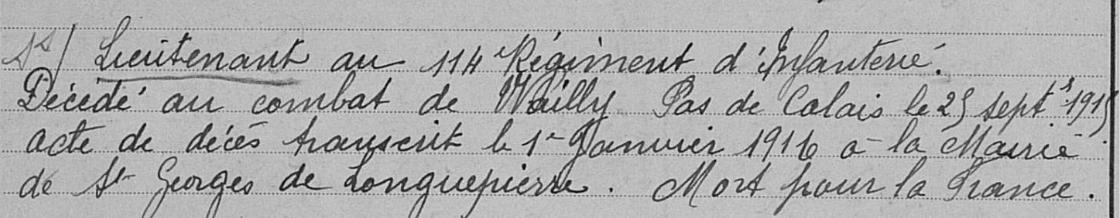 Ss/ Lieutenant au 114e Régiment d'Infanterie.
Décédé au combat de Wailly Pas de Calais le 25 septbre 1915
acte de décès transcrit le 1er Janvier 1916 à la Mairie
de St Georges de Longuepierre. Mort pour la France.